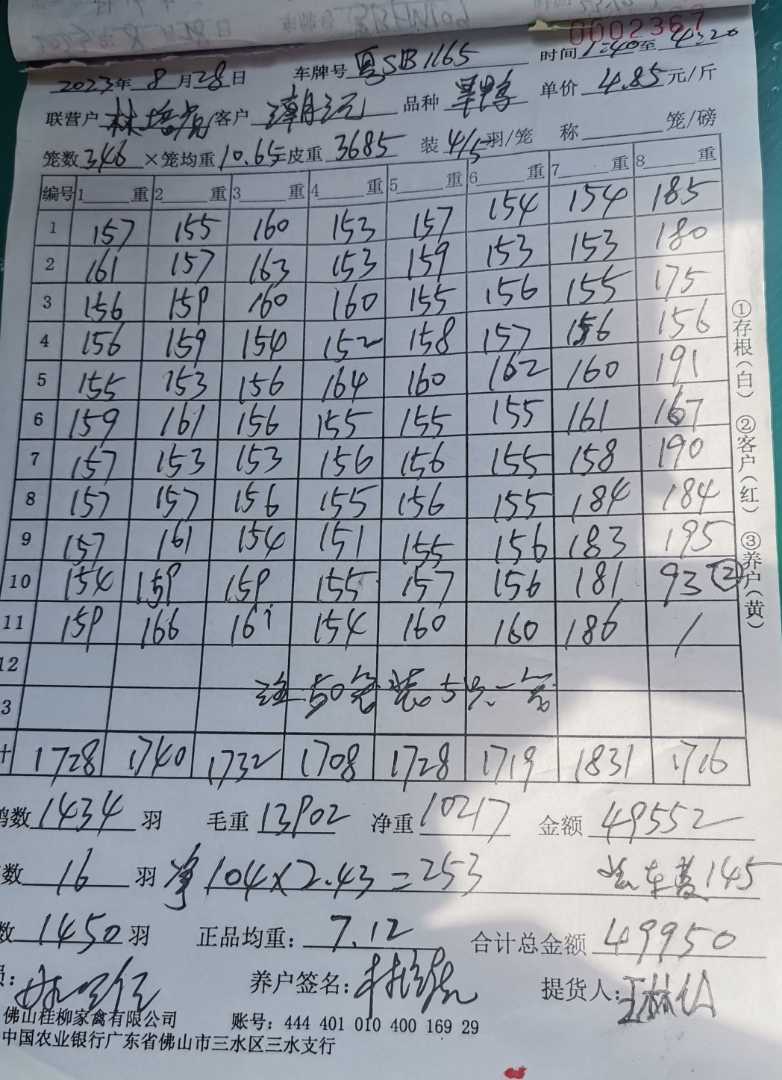 0002367
2023年 8月28日 车牌号 粤SB1165 时间 1:40至 4:20
联营户 林培 客户 潮记 品种 单价 4.85 元/斤
笼数 346 ×笼均重 10.65 = 皮重 3685 装 4/5 羽/笼 称 笼/磅
编号 1 重 2 重 3 重 4 重 5 重 6 重 7 重 8 重
1 157 155 160 153 157 154 154 185
2 161 157 163 153 159 153 153 180
3 156 159 160 160 155 156 155 175
4 156 159 154 152 158 157 156 156
5 155 153 156 164 160 162 160 191
6 159 161 156 155 155 155 161 167
7 157 153 153 156 156 155 158 190
8 157 157 156 155 156 155 184 184
9 157 161 154 151 155 156 183 195
10 154 159 159 155 157 156 181 93 ②
11 159 166 161 154 160 160 186 /
12
注:50笼装5只一笼
3
1728 1740 1732 1708 1728 1719 1831 1716
鸭数 1434 羽 毛重 13902 净重 10217 金额 49552
数 16 羽 净 104×2.43=253 汽车费145
数 1450 羽 正品均重: 7.12 合计总金额 49950
员: 养户签名: 提货人:
佛山桂柳家禽有限公司 账号: 444 401 010 400 169 29
中国农业银行广东省佛山市三水区三水支行
①存根(白) ②客户(红) ③养户(黄)